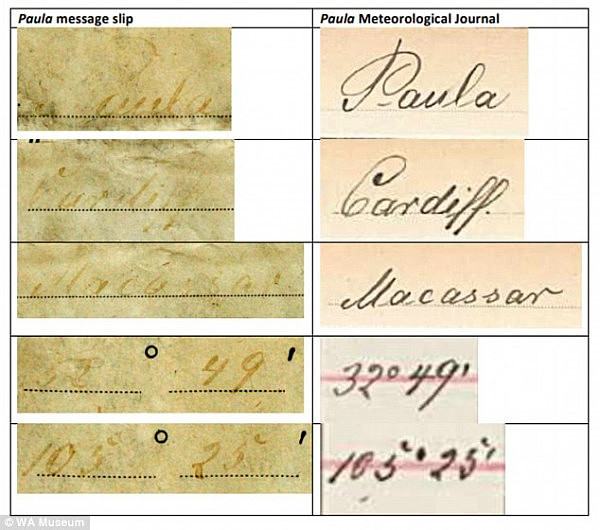 Paula message slip Paula Meteorological Journal
Paula Paula
Cardiff Cardiff.
Macassar Macassar
32° 49' 32° 49'
105° 25' 105° 25'
© WA Museum